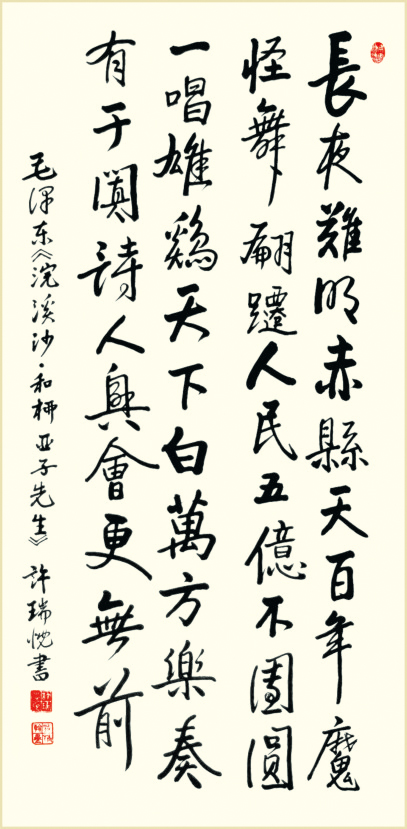 長夜難明赤縣天百年魔
怪舞翩躚人民五億不團圓
一唱雄鷄天下白萬方樂奏
有于闐詩人興會更無前
毛泽东《浣溪沙·和柳亚子先生》許瑞悦書